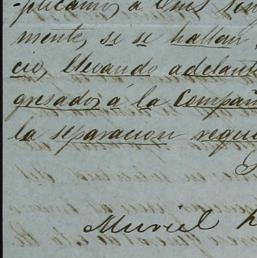 plicamos á Cius
mente, se se hallan
cio, llevando adelant
gresados á la Compañ
la separacion reque
Muriel